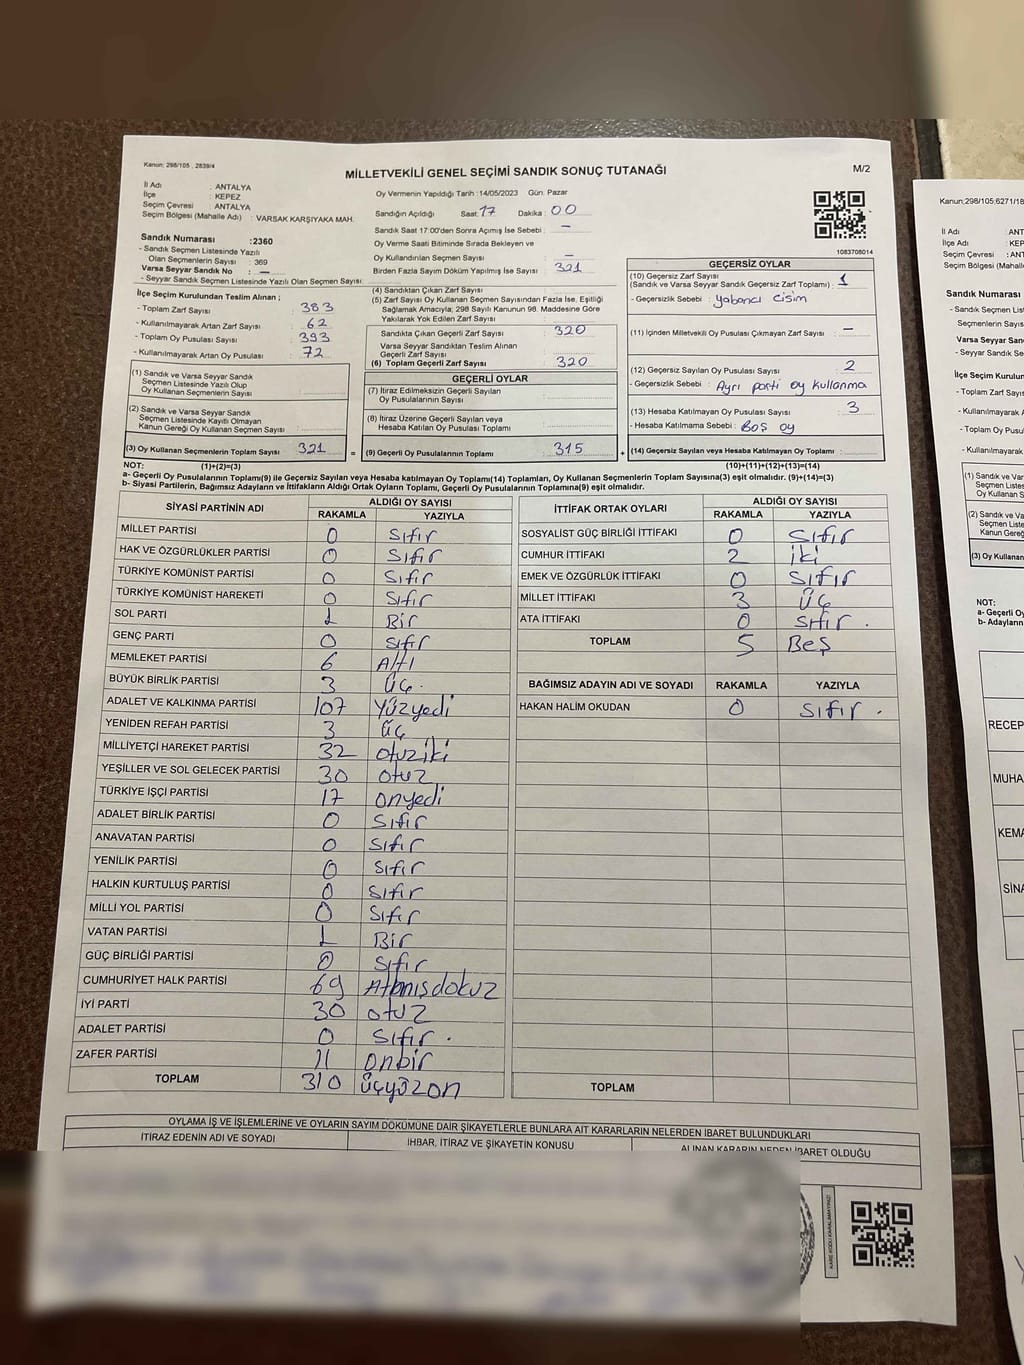 Kanun; 298/105 , 2839/4
MİLLETVEKİLİ GENEL SEÇİMİ SANDIK SONUÇ TUTANAĞI
M/2
İl Adı : ANTALYA
İlçe : KEPEZ
Seçim Çevresi : ANTALYA
Seçim Bölgesi (Mahalle Adı) : VARSAK KARŞIYAKA MAH.
Sandık Numarası :2360
- Sandık Seçmen Listesinde Yazılı
Olan Seçmenlerin Sayısı : 369
Varsa Seyyar Sandık No : —
- Seyyar Sandık Seçmen Listesinde Yazılı Olan Seçmen Sayısı:
İlçe Seçim Kurulundan Teslim Alınan ;
- Toplam Zarf Sayısı : 383
- Kullanılmayarak Artan Zarf Sayısı : 62
- Toplam Oy Pusulası Sayısı : 393
- Kullanılmayarak Artan Oy Pusulası : 72
(1) Sandık ve Varsa Seyyar Sandık
Seçmen Listesinde Yazılı Olup
Oy Kullanan Seçmenlerin Sayısı :
(2) Sandık ve Varsa Seyyar Sandık
Seçmen Listesinde Kayıtlı Olmayan
Kanun Gereği Oy Kullanan Seçmen Sayısı :
(3) Oy Kullanan Seçmenlerin Toplam Sayısı : 321
Oy Vermenin Yapıldığı Tarih : 14/05/2023 Gün: Pazar
Sandığın Açıldığı Saat: 17 Dakika : 00
Sandık Saat 17:00'den Sonra Açımış İse Sebebi : —
Oy Verme Saati Bitiminde Sırada Bekleyen ve
Oy Kullandırılan Seçmen Sayısı : —
Birden Fazla Sayım Döküm Yapılmış İse Sayısı : 321
(4) Sandıktan Çıkan Zarf Sayısı
(5) Zarf Sayısı Oy Kullanan Seçmen Sayısından Fazla İse, Eşitliği
Sağlamak Amacıyla; 298 Sayılı Kanunun 98. Maddesine Göre
Yakılarak Yok Edilen Zarf Sayısı
Sandıkta Çıkan Geçerli Zarf Sayısı : 320
Varsa Seyyar Sandıktan Teslim Alınan
Geçerli Zarf Sayısı
(6) Toplam Geçerli Zarf Sayısı : 320
GEÇERLİ OYLAR
(7) İtiraz Edilmeksizin Geçerli Sayılan
Oy Pusulalarının Sayısı :
(8) İtiraz Üzerine Geçerli Sayılan veya
Hesaba Katılan Oy Pusulası Toplamı :
= (9) Geçerli Oy Pusulalarının Toplamı : 315
1083708014
GEÇERSİZ OYLAR
(10) Geçersiz Zarf Sayısı
(Sandık ve Varsa Seyyar Sandık Geçersiz Zarf Toplamı) : 1
- Geçersizlik Sebebi : yabancı cisim
(11) İçinden Milletvekili Oy Pusulası Çıkmayan Zarf Sayısı : —
(12) Geçersiz Sayılan Oy Pusulası Sayısı : 2
- Geçersizlik Sebebi : Ayrı parti oy kullanma
(13) Hesaba Katılmayan Oy Pusulası Sayısı : 3
- Hesaba Katılmama Sebebi : Boş oy
+ (14) Geçersiz Sayılan veya Hesaba Katılmayan Oy Toplamı :
NOT: (1)+(2)=(3) (10)+(11)+(12)+(13)=(14)
a- Geçerli Oy Pusulalarının Toplamı(9) ile Geçersiz Sayılan veya Hesaba katılmayan Oy Toplamı(14) Toplamları, Oy Kullanan Seçmenlerin Toplam Sayısına(3) eşit olmalıdır. (9)+(14)=(3)
b- Siyasi Partilerin, Bağımsız Adayların ve İttifakların Aldığı Ortak Oyların Toplamı, Geçerli Oy Pusulalarının Toplamına(9) eşit olmalıdır.
SİYASİ PARTİNİN ADI ALDIĞI OY SAYISI
RAKAMLA YAZIYLA
MİLLET PARTİSİ 0 Sıfır
HAK VE ÖZGÜRLÜKLER PARTİSİ 0 Sıfır
TÜRKİYE KOMÜNİST PARTİSİ 0 Sıfır
TÜRKİYE KOMÜNİST HAREKETİ 0 Sıfır
SOL PARTİ 1 Bir
GENÇ PARTİ 0 Sıfır
MEMLEKET PARTİSİ 6 Altı
BÜYÜK BİRLİK PARTİSİ 3 Üç.
ADALET VE KALKINMA PARTİSİ 107 Yüzyedi
YENİDEN REFAH PARTİSİ 3 üç
MİLLİYETÇİ HAREKET PARTİSİ 32 otuziki
YEŞİLLER VE SOL GELECEK PARTİSİ 30 otuz
TÜRKİYE İŞÇİ PARTİSİ 17 onyedi
ADALET BİRLİK PARTİSİ 0 Sıfır
ANAVATAN PARTİSİ 0 Sıfır
YENİLİK PARTİSİ 0 Sıfır
HALKIN KURTULUŞ PARTİSİ 0 Sıfır
MİLLİ YOL PARTİSİ 0 Sıfır
VATAN PARTİSİ 1 Bir
GÜÇ BİRLİĞİ PARTİSİ 0 Sıfır
CUMHURİYET HALK PARTİSİ 69 Atbmışdokuz
İYİ PARTİ 30 otuz
ADALET PARTİSİ 0 Sıfır.
ZAFER PARTİSİ 11 onbir
TOPLAM 310 üçyüzon
İTTİFAK ORTAK OYLARI ALDIĞI OY SAYISI
RAKAMLA YAZIYLA
SOSYALİST GÜÇ BİRLİĞİ İTTİFAKI 0 Sıfır
CUMHUR İTTİFAKI 2 iki
EMEK VE ÖZGÜRLÜK İTTİFAKI 0 Sıfır
MİLLET İTTİFAKI 3 Üç
ATA İTTİFAKI 0 sıfır.
TOPLAM 5 Beş
BAĞIMSIZ ADAYIN ADI VE SOYADI RAKAMLA YAZIYLA
HAKAN HALİM OKUDAN 0 sıfır.
TOPLAM
OYLAMA İŞ VE İŞLEMLERİNE VE OYLARIN SAYIM DÖKÜMÜNE DAİR ŞİKAYETLERLE BUNLARA AİT KARARLARIN NELERDEN İBARET BULUNDUKLARI
İTİRAZ EDENİN ADI VE SOYADI İHBAR, İTİRAZ VE ŞİKAYETİN KONUSU ALINAN KARARIN NEDEN İBARET OLDUĞU
KARE KODU KARALAMAYINIZ!
Kanun;298/105;6271/18
İl Adı : ANT
İlçe Adı : KEP
Seçim Çevresi : ANT
Seçim Bölgesi
Sandık Numarası
- Sandık Seçmen
Seçmenlerin Sayısı
Varsa Seyyar
- Seyyar Sandık
İlçe Seçim Kurulun
- Toplam Zarf Sayıs
- Kullanılmayarak A
- Toplam Oy Pusula
- Kullanılmayarak
(1) Sandık ve Var
Seçmen Listes
Oy Kullanan S
(2) Sandık ve Var
Seçmen Liste
Kanun Gereğ
(3) Oy Kullanan
NOT:
a- Geçerli Oy
b- Adayların
RECEP
MUHA
KEMA
SİNA